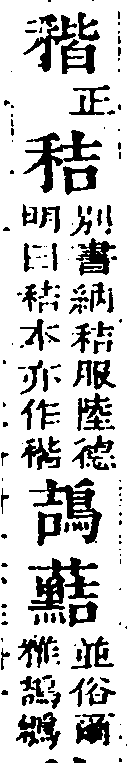 稭
正
秸
別書納秸服陸德
明曰秸本亦作稭
鴶
並俗爾
雅鴶鵴